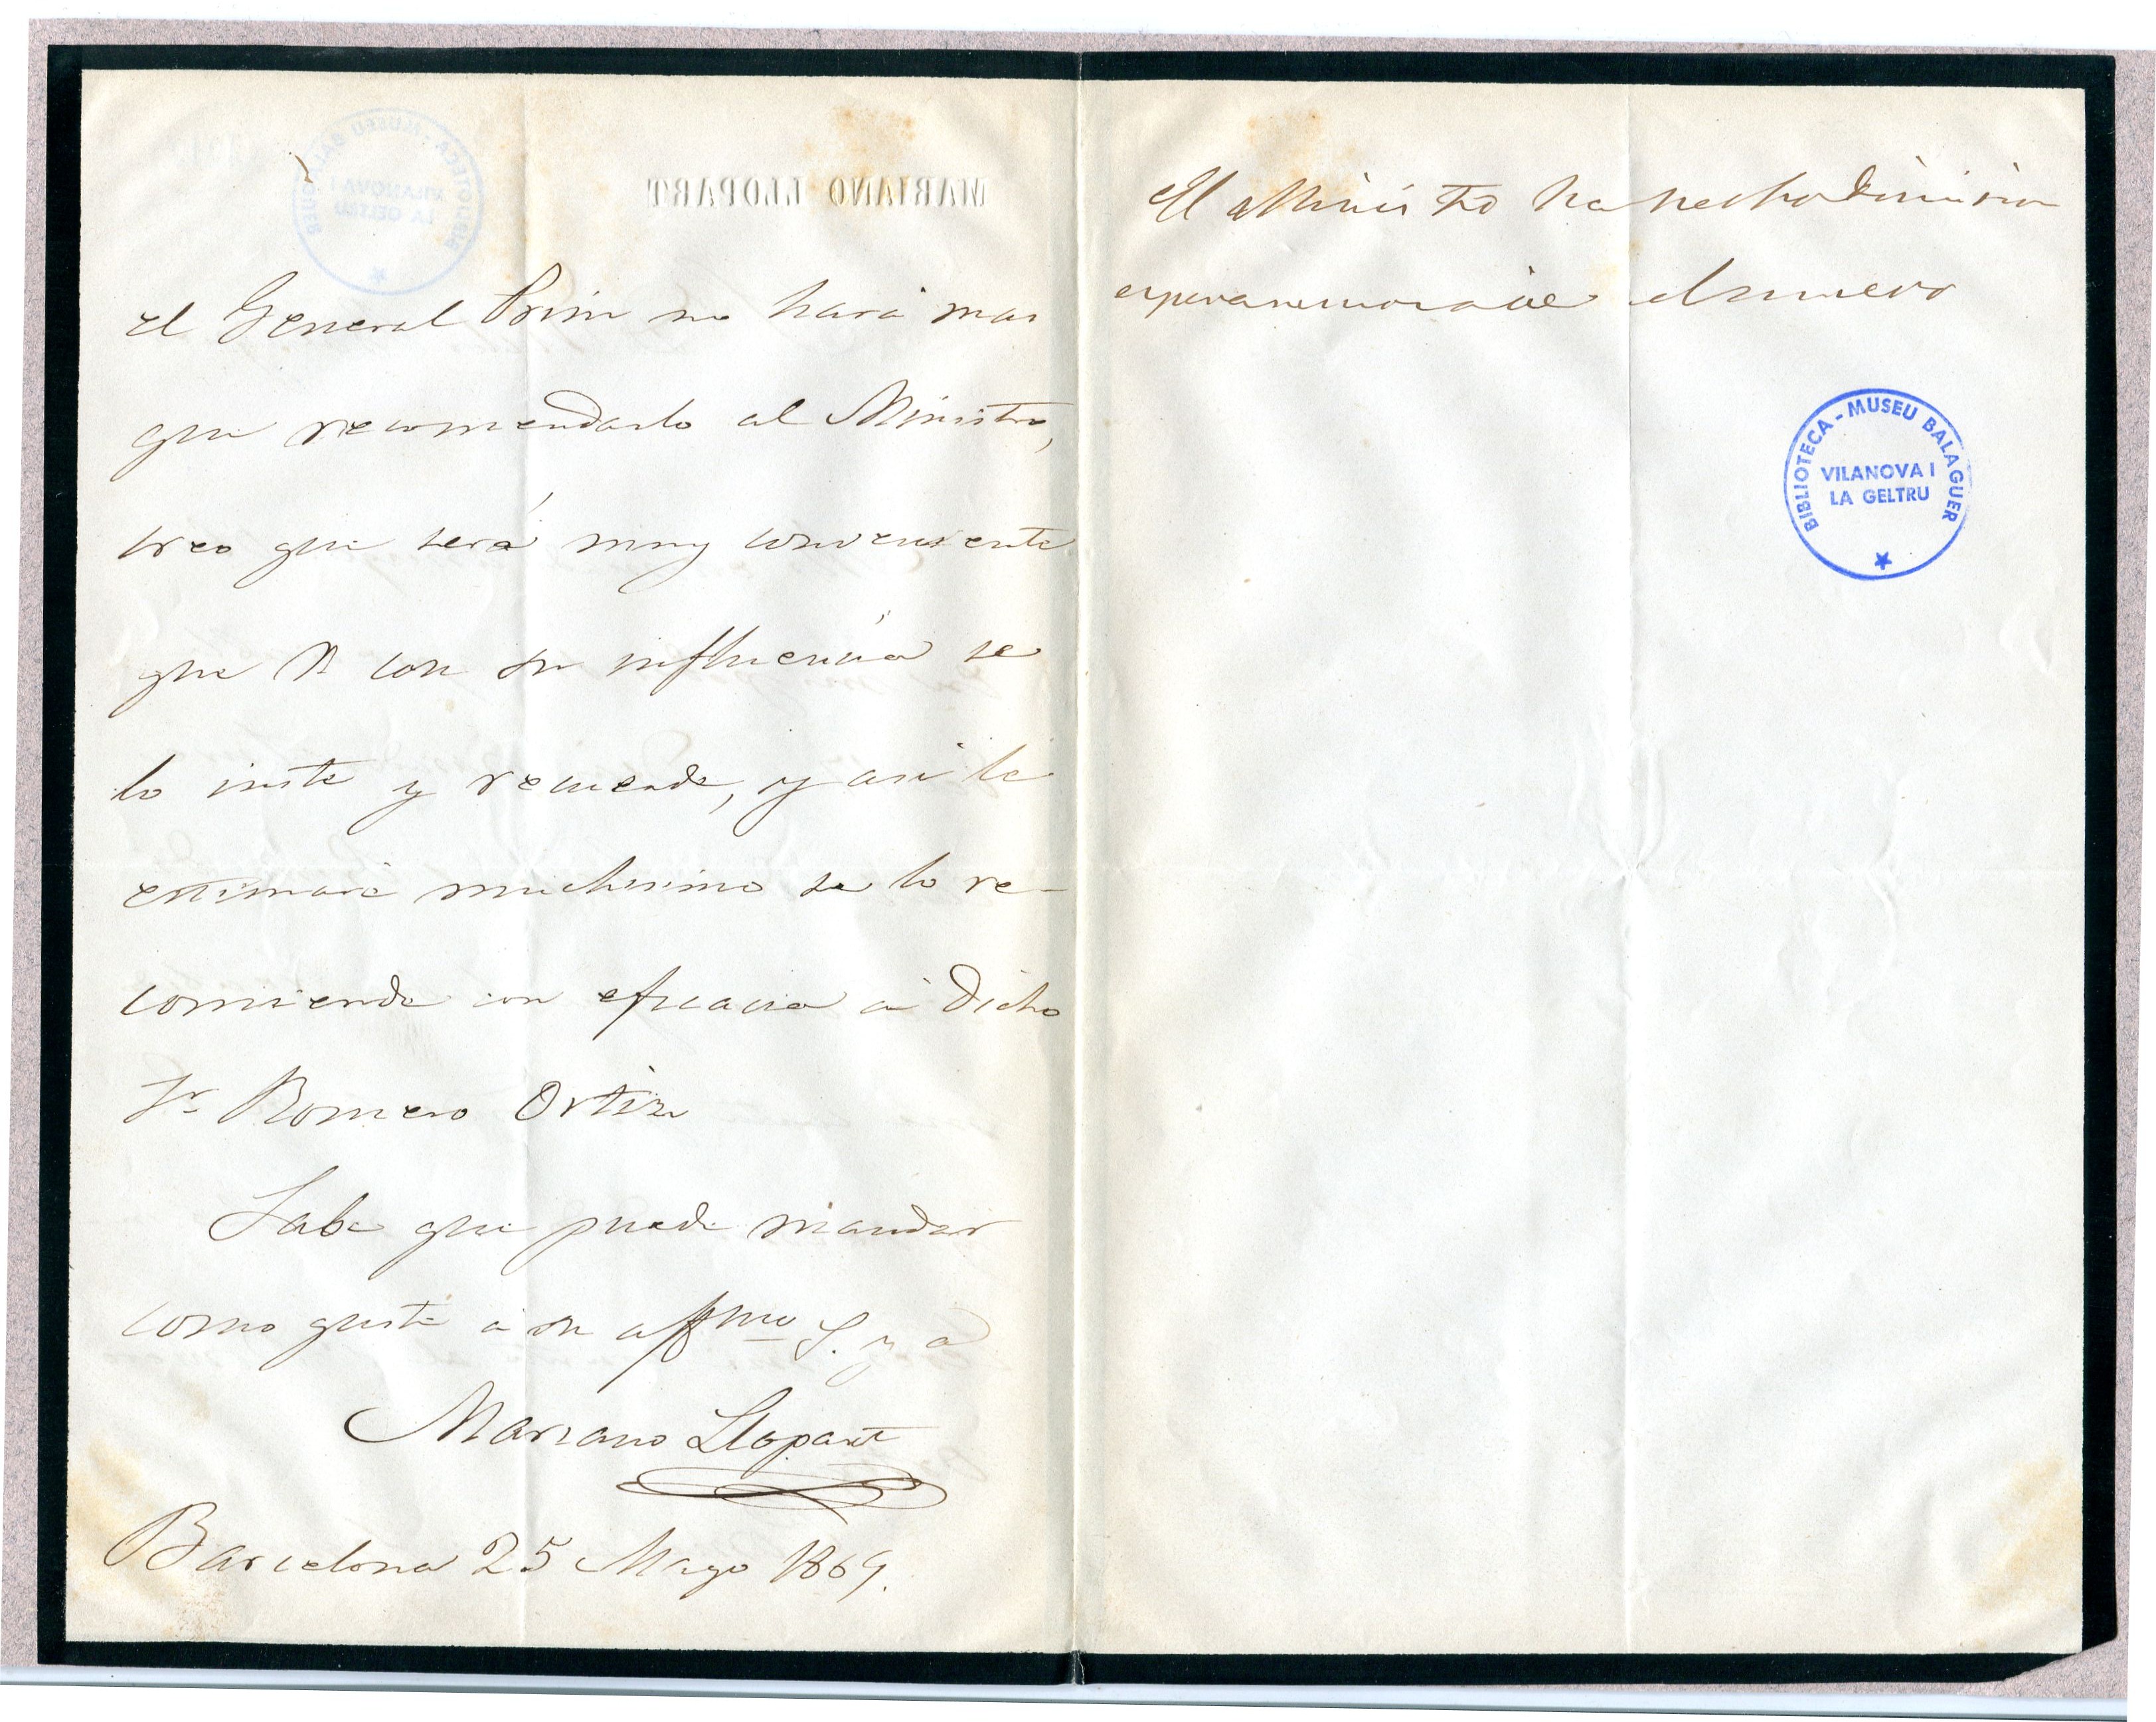 MARIANO LLOPART
el General Prim no hará mas
que recomendarlo al Ministro,
creo que será muy conveniente
que V con su influencia se
lo inste y recuerde, y asi le
estimaré muchisimo se lo re-
comiende con eficacia á dicho
Sr Romero Ortiz
Sabe que puede mandar
como guste á su affmo S. y a
Mariano Llopart
Barcelona 25 Mayo 1869.
El Ministro ha hecho dimision
esperaremos el nuevo
BIBLIOTECA - MUSEU BALAGUER
VILANOVA I
LA GELTRU